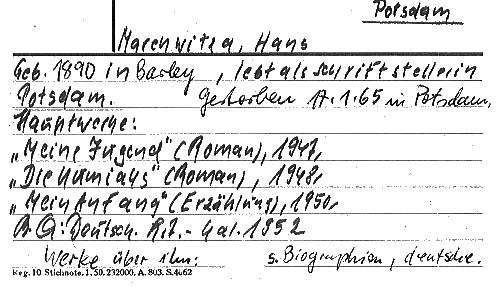 Potsdam
Marchwitza, Hans
Geb. 1890 in Barley, lebt als Schriftsteller in
Potsdam. gestorben 17.1.65 in Potsdam,
Hauptwerke:
„Meine Jugend" (Roman), 1947,
„Die Kumiaks" (Roman), 1948,
„Mein Anfang" (Erzählung), 1950,
A Q: Deutsch. R.I. - Gal. 1952
Werke über ihn: s. Biographien, deutsche.
Reg. 10 Stichnote. 1. 50. 232000. A. 803. S. 4662